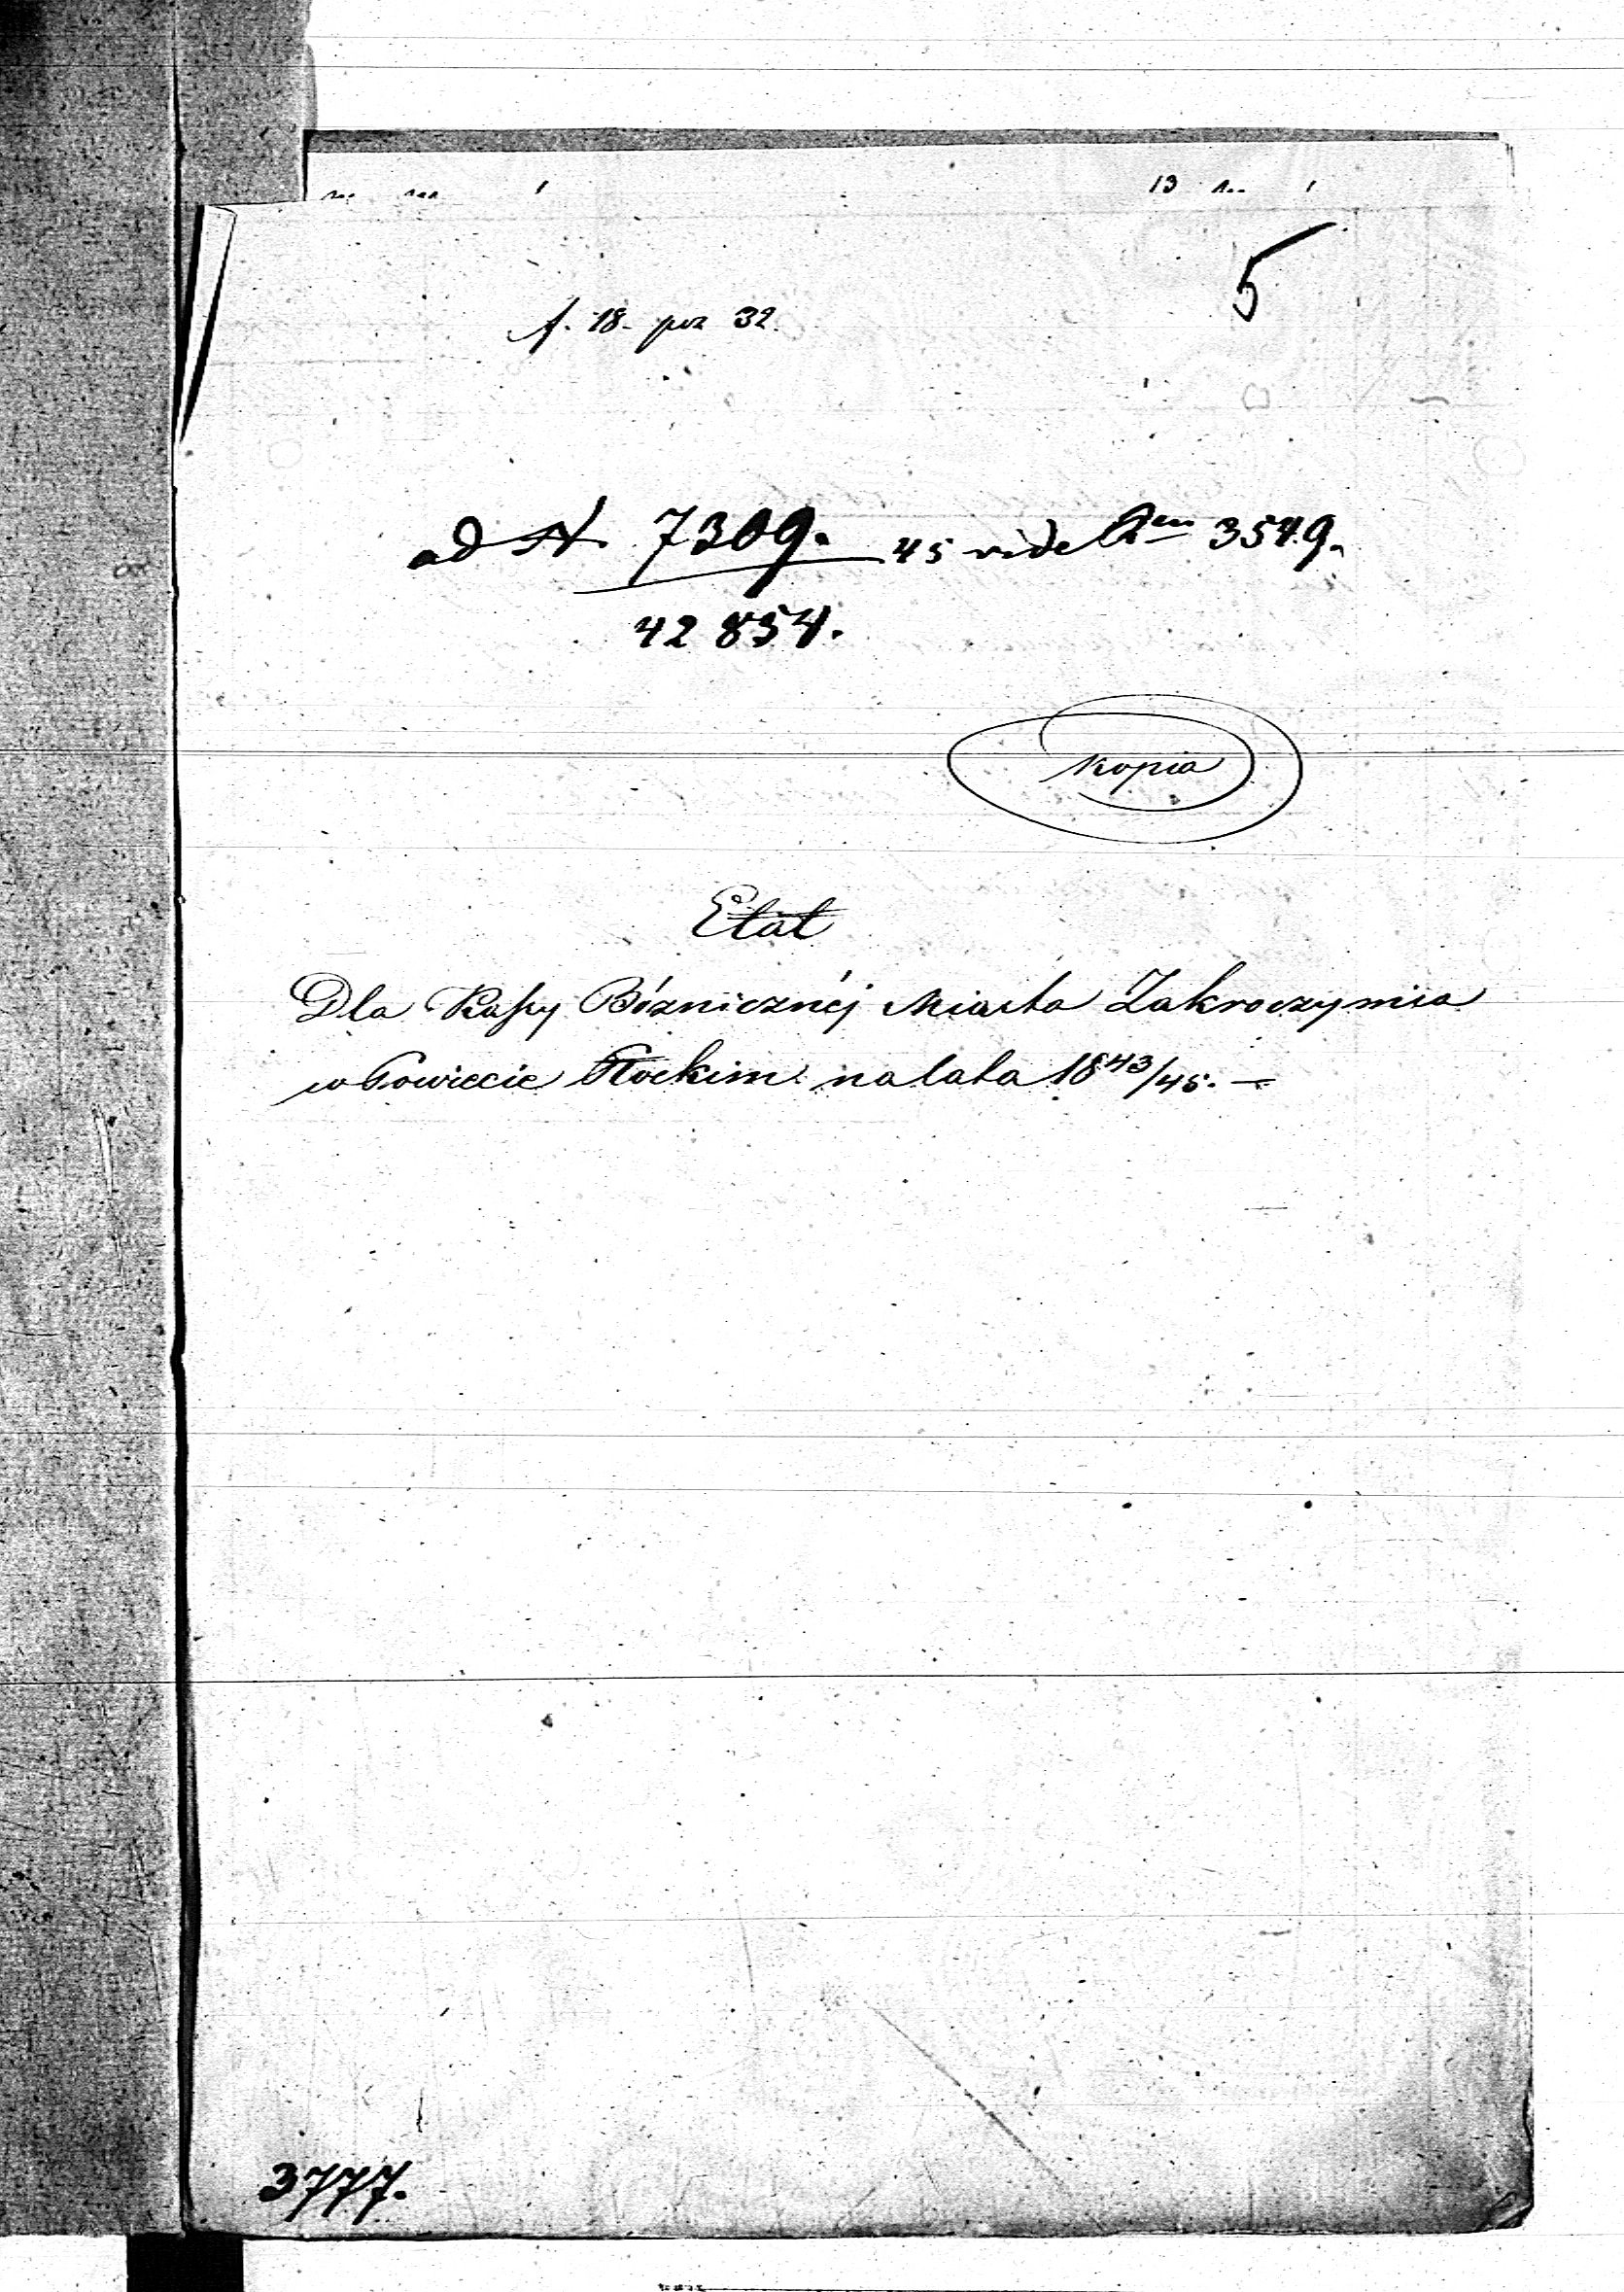 5
f. 18. poz 32.
ad N. 7309. 45 vide 3549.
42 854.
Kopia
Etat
Dla Kassy Bóżnicznéj Miasta Zakroczymia
w Powiecie Płockim na lata 18 43/45. —
3777.